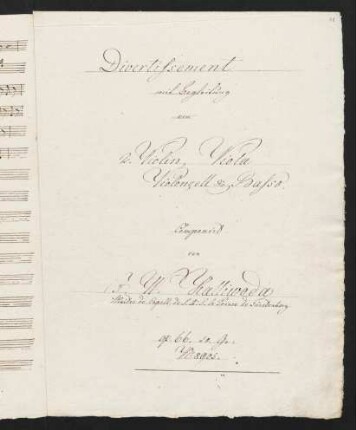 Divertissement
mit Begleitung
von
2. Violin, Viola
Violonzell & Basso
Componirt
von
J. W. Kalliwoda
Maitre de Chapelle de S. A. S. le Prince de Fürstenberg
op. 66.